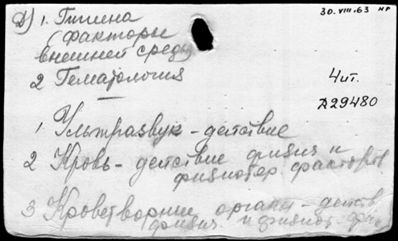 Д) 1. Гигиена
30.VIII.63 НР
(факторы
внешней среды
2 Гематология
4 ит.
Д29480
1 Ультразвук - действие
2 Кровь - действие физич и
физиотер. факторов
3 Кроветворные органы - действ
физич. и физиот. фа